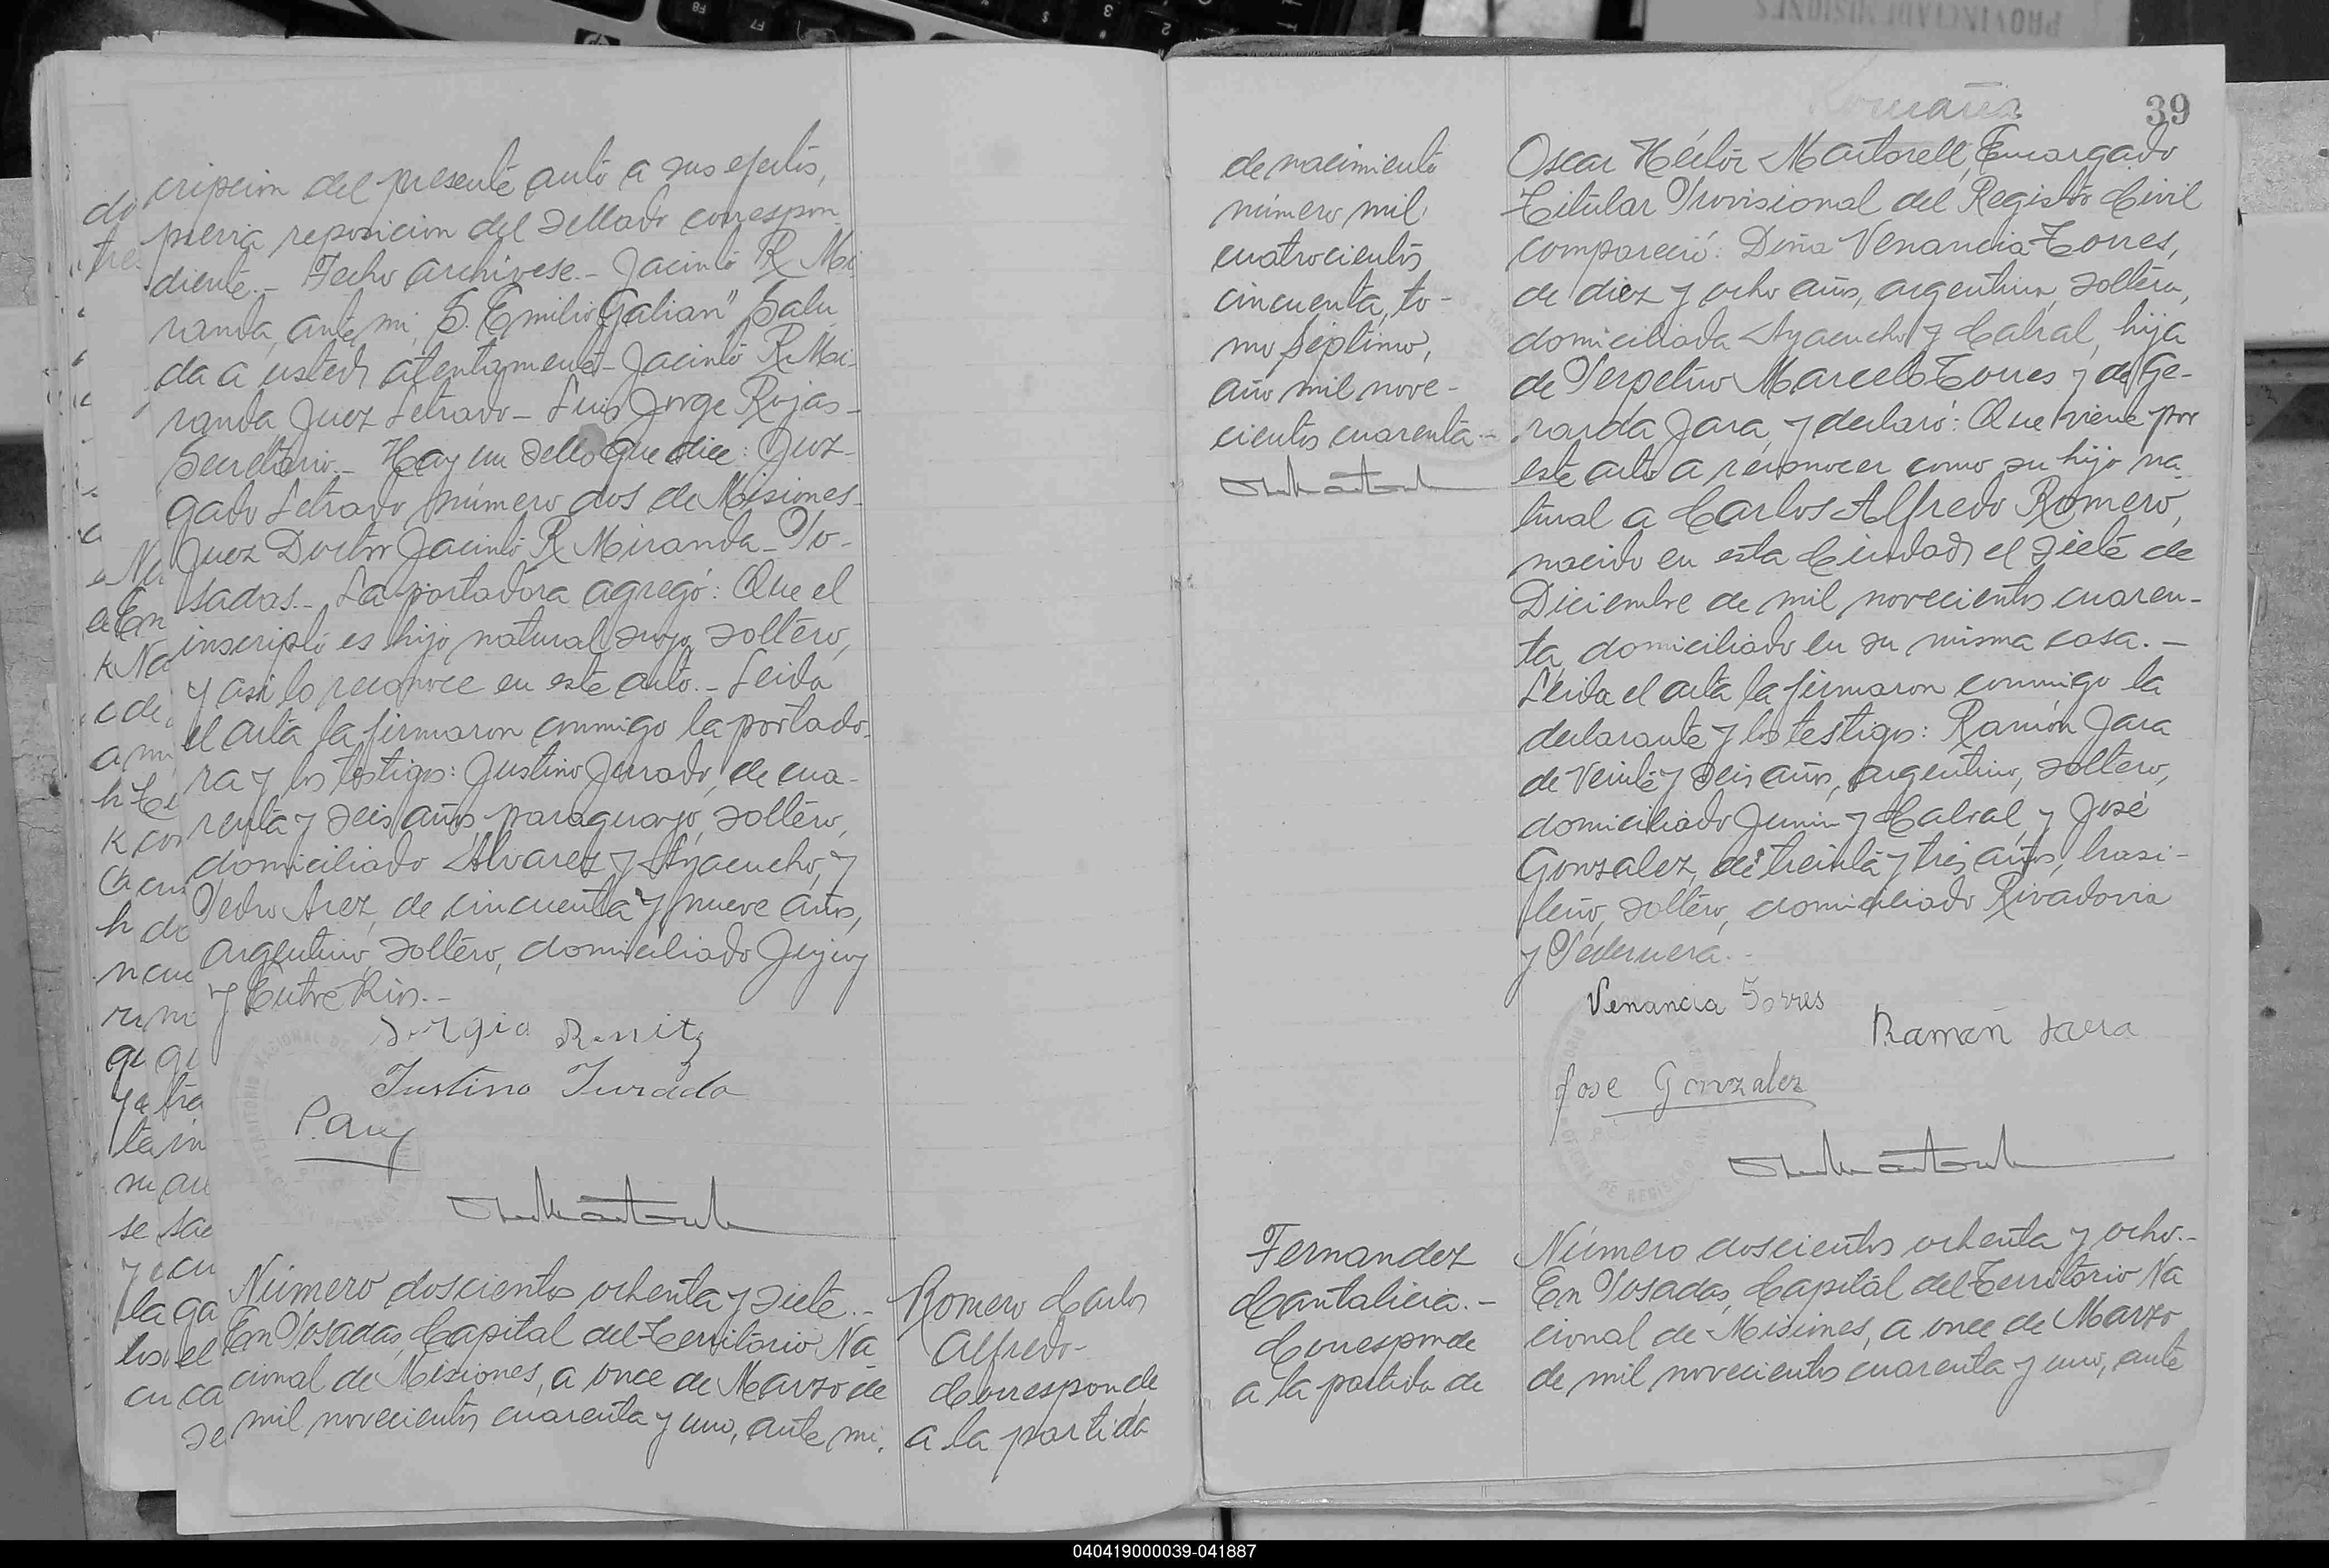 cripcion del presente auto a sus efectos,
previa reposicion del sellado correspon
diente.- Fecho archivese.- Jacinto R Mi
randa, ante mi, S. Emilio Galian" Salu
da a usted, atentamente- Jacinto R. Mi-
randa Juez Letrado- Luis Jorge Rojas-
Secretario.- Hay un sello que dice: Juz-
gado Letrado número dos de Misiones-
Juez Doctor Jacinto R Miranda- Po-
sadas.- La portadora agregó: Que el
inscripto es hijo natural suyo, soltero,
y asi lo reconoce en este acto.- Leida
el acta la firmaron conmigo la portado-
ra y los testigos: Justino Jurado, de cua-
renta y seis años, paraguayo, soltero,
domiciliado Alvarez y Ayacucho, y
Pedro Arez, de cincuenta y nueve años,
argentino, soltero, domiciliado Jujuy
y Entre Rios.-
Justino Jurado
Número doscientos ochenta y siete.-
En Posadas, Capital del Territorio Na
cional de Misiones, a once de Marzo de
mil novecientos cuarenta y uno, ante mi,
Romero Carlos
Alfredo-
Corresponde
a la partida
39
de nacimiento
número mil
cuatrocientos
cincuenta, to-
mo séptimo,
año mil nove-
cientos cuarenta.-
Oscar Héctor Martorell, Encargado
Titular Provisional del Registro Civil
compareció: Doña Venancia Torres,
de diez y ocho años, argentina, soltera,
domiciliada Ayacucho y Cabral, hija
de Perpetuo Marcelo Torres y de Ge-
rarda Jara, y declaró: Que viene por
este acto a reconocer como su hijo na
tural a Carlos Alfredo Romero,
nacido en esta Ciudad, el siete de
Diciembre de mil novecientos cuaren-
ta, domiciliado en su misma casa.-
Leida el acta la firmaron conmigo la
declarante y los testigos: Ramón Jara
de veinte y seis años, argentino, soltero,
domiciliado Junin y Cabral, y José
Gonzalez, de treinta y tres años, brasi-
leño, soltero, domiciliado Rivadavia
y Pedernera.-
Venancia Torres
Ramón Jara
Jose Gonzalez
Fernandez
Cantalicia.-
Corresponde
a la partida de
Número doscientos ochenta y ocho.-
En Posadas, Capital del Territorio Na
cional de Misiones, a once de Marzo
de mil novecientos cuarenta y uno, ante
040419000039-041887